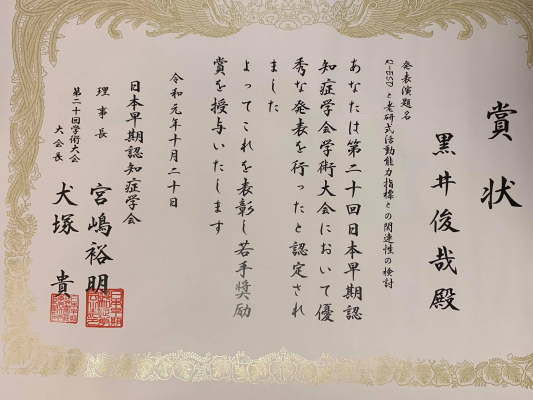 賞状
黒井俊哉殿
発表演題名
R-ESDと老研式活動能力指標との関連性の検討
あなたは第二十回日本早期認
知症学会学術大会において優
秀な発表を行ったと認定され
ました
よってこれを表彰し若手奨励
賞を授与いたします
令和元年十月二十日
日本早期認知症学会
理事長 宮嶋裕明
第二十回学術大会
大会長 犬塚 貴